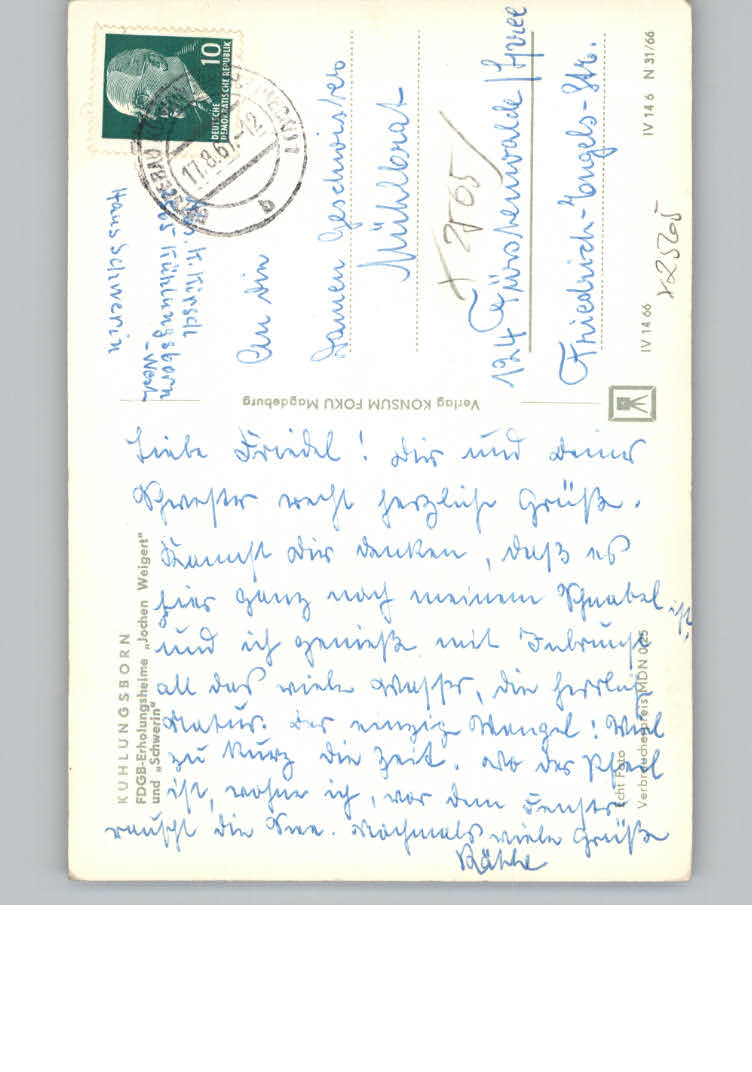 KÜHLUNGSBORN
FDGB-Erholungsheime „Jochen Weigert"
und „Schwerin"
Liebe Friedel! Dir und Deiner
Schwester recht herzliche Grüße.
Kannst Dir denken, daß es
hier ganz nach meinem Schnabel ist,
und ich genieße mit Inbrunst
all das viele Wasser, die herrliche
Natur. Der einzige Mangel: Viel
zu kurz die Zeit. Wo der Pfeil
ist, wohne ich, vor dem Fenster
rauscht die See. Nochmals viele Grüße
Käthe
Echt Foto
Verbraucherpreis MDN 0,25
Verlag KONSUM FOKU Magdeburg
10
DEUTSCHE
DEMOKRATISCHE REPUBLIK
11.8.67-12
b
K. Kirsch
25 Kühlungsborn
-West
Haus Schwerin
An die
Damen Geschwister
Mühlbrat
x 2565/
124 Fürstenwalde/Spree
Friedrich-Engels-Str.
x25265
IV 14 66
IV 14 6 N 31/66